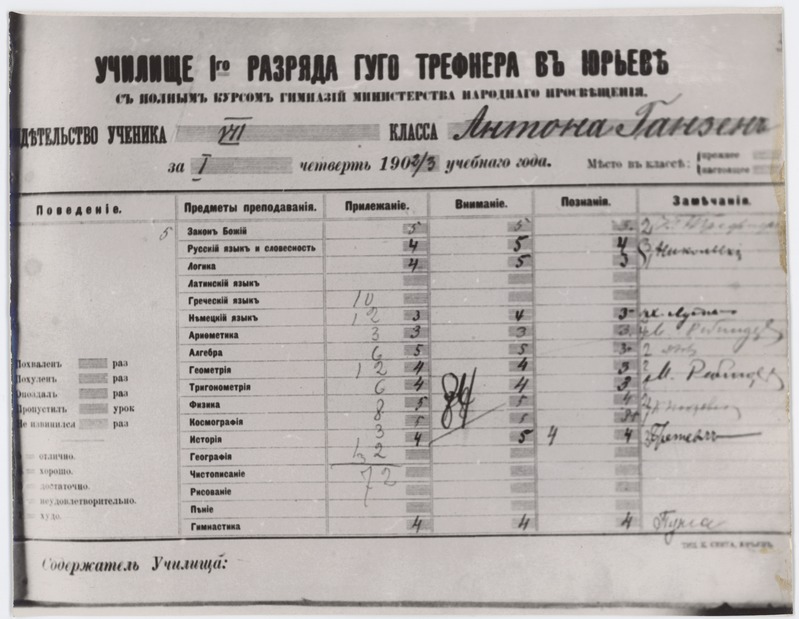 УЧИЛИЩЕ Iго РАЗРЯДА ГУГО ТРЕФНЕРА ВЪ ЮРЬЕВѢ
СЪ ПОЛНЫМЪ КУРСОМЪ ГИМНАЗІЙ МИНИСТЕРСТВА НАРОДНАГО ПРОСВѢЩЕНІЯ.
ДѢТЕЛЬСТВО УЧЕНИКА VII КЛАССА Антона Ганзенъ
за I четверть 1902/3 учебнаго года. Мѣсто въ классѣ: прежнее
настоящее
Поведеніе. Предметы преподаванія. Прилежаніе. Вниманіе. Познанія. Замѣчанія.
5 Законъ Божій 5 5 5 2
Русскій языкъ и словесность 4 5 4 3
Логика 4 5 3
Латинскій языкъ
Греческій языкъ 10
Нѣмецкій языкъ 12 3 4 3
Ариѳметика 3 3 3 3 4
Алгебра 6 5 5 3 2
Геометрія 12 4 4 3 2 М.
Тригонометрія 6 4 4 3
Физика 8 5 5 4
Космографія 5 5
Исторія 3 4 5 4 4
Географія 12
Чистописаніе 72
Рисованіе
Пѣніе
Гимнастика 4 4 4
84
Похваленъ раз
Похуленъ раз
Опоздалъ раз
Пропустилъ урок
Не извинился раз
отлично.
хорошо.
достаточно.
неудовлетворительно.
худо.
Содержатель Училища: